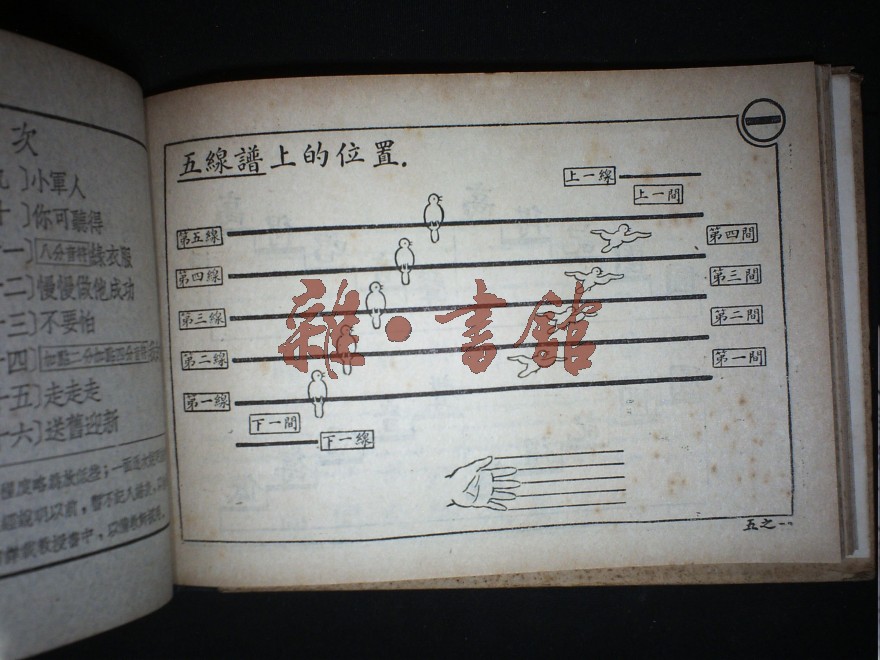 次
九〕小軍人
十〕你可聽得
十一〕八分音符綠衣服
十二〕慢慢做他成功
十三〕不要怕
十四〕
十五〕走走走
十六〕送舊迎新
一
五線譜上的位置.
上一線
上一間
第五線
第四間
第四線
第三間
第三線
第二間
第二線
第一間
第一線
下一間
下一線
雜·書館
五之一